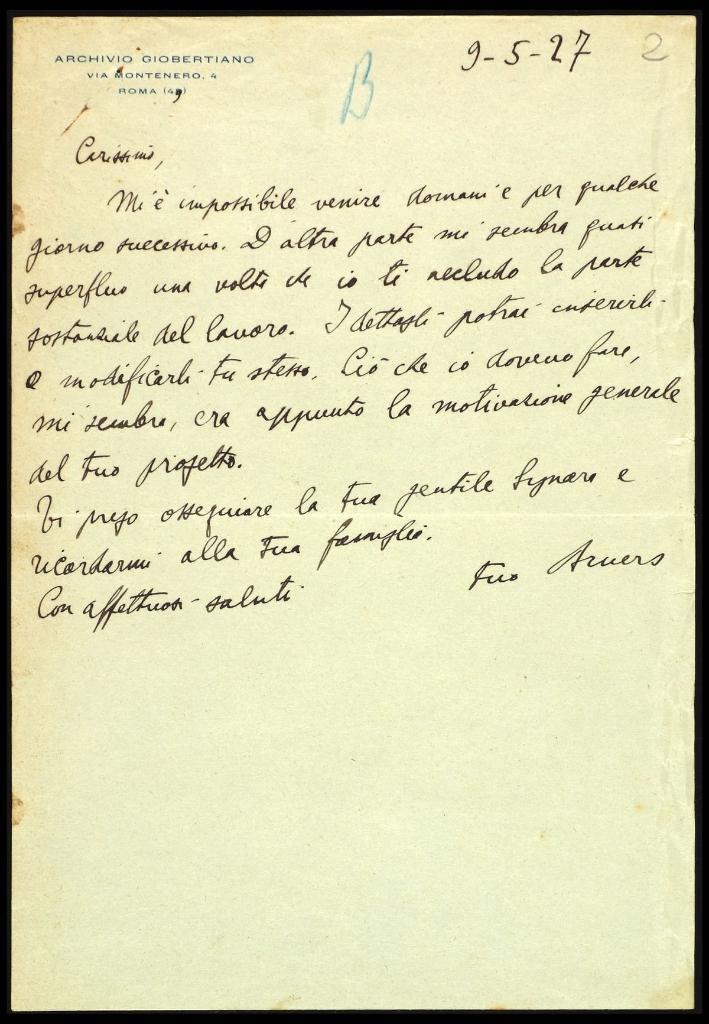 ARCHIVIO GIOBERTIANO
VIA MONTENERO, 4
ROMA (49)
9-5-27
2
B
Carissimo,
Mi è impossibile venire domani e per qualche
giorno successivo. D'altra parte mi sembra quasi
superfluo una volta che io ti accludo la parte
sostanziale del lavoro. I dettagli potrai inserirli
e modificarli tu stesso. Ciò che io dovevo fare,
mi sembra, era appunto la motivazione generale
del tuo progetto.
Ti prego ossequiare la tua gentile Signora e
ricordarmi alla tua famiglia.
Con affettuosi saluti
tuo